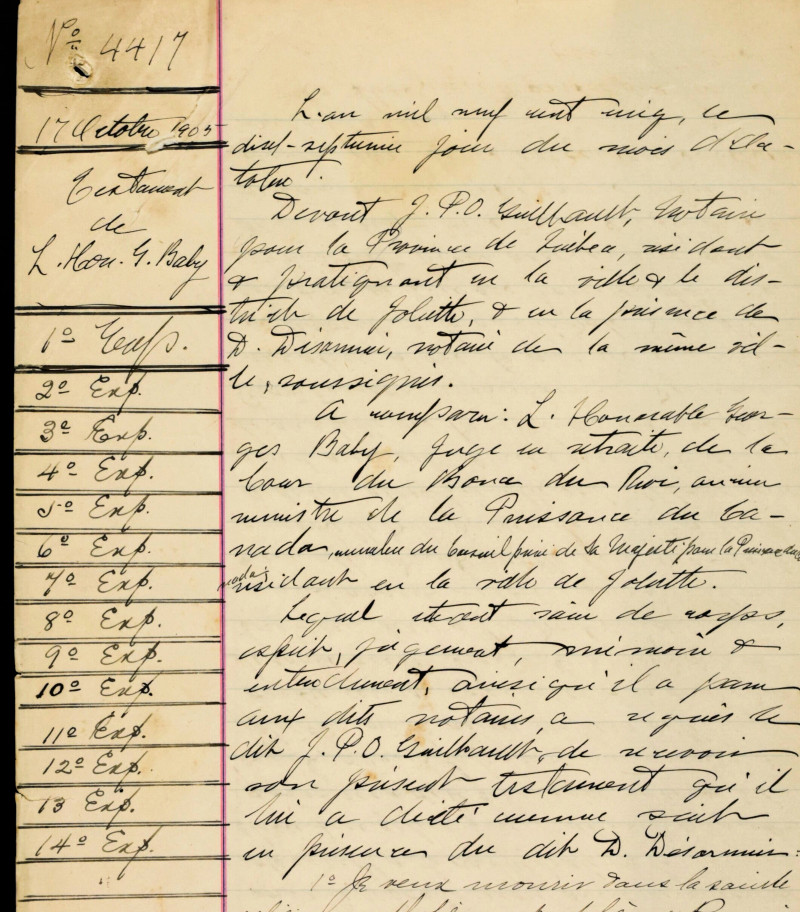 No 4417
17 Octobre 1905
Testament
de
L. Hon. G. Baby
1o Exp.
2o Exp.
3e Exp.
4o Exp.
5o Exp.
6e Exp.
7o Exp.
8o Exp.
9o Exp.
10o Exp.
11o Exp.
12o Exp.
13 Exp.
14o Exp.
L'an mil neuf cent cinq, ce
dixel-septième jour du mois d'Oc-
tobre.
Devant J. P. O. Guilbault, Notaire
pour la Province de Québec, résidant
& pratiquant en la ville & le dis-
trict de Joliette, & en la présence de
D. Désormier, notaire de la même vil-
le, soussignés.
A comparu: L. Honorable Geor-
ges Baby, Juge en retraite, de la
Cour du Banc du Roi, ancien
ministre de la Puissance du Ca-
nada, membre du Conseil privé de Sa Majesté pour la Puissance du Ca
nada, résidant en la ville de Joliette.
Lequel étant sain de corps,
esprit, jugement, mémoire &
entendement, ainsi qu'il a paru
aux dits notaires, a requis le
dit J. P. O. Guilbault, de recevoir
son présent testament qu'il
lui a dicté comme suit
en présence du dit D. Désormier:
1o Je veux mourir dans la sainte